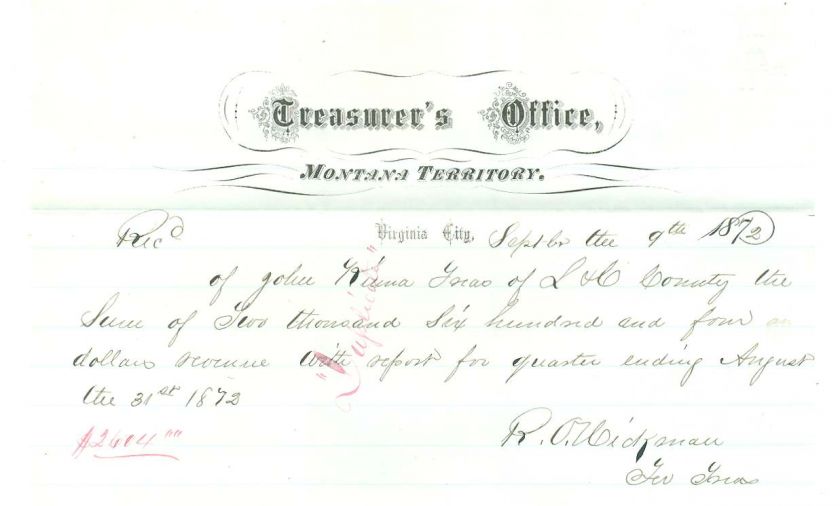 Treasurer's Office,
MONTANA TERRITORY.
Rec'd Virginia City, Septbr the 9th 1872
of John Kinna Treas of L & C County the
Sum of Two thousand Six hundred and four
dollars revenue with report for quarter ending August
the 31st 1872
"Duplicate"
$2604""
R. O. Hickman
Ter Treas